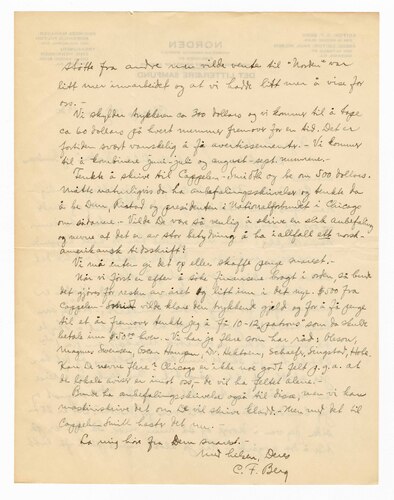 støtte fra andre men vilde vente til "Norden" var
litt mer innarbeidet og at vi hadde litt mer å vise for
oss.-
Vi skylder trykkeren ca 200 dollars og vi kommer til å tape
ca 60 dollars på hvert nummer fremover for en tid. Det er
fortiden svært vanskelig å få avertissementer.- Vi kommer
til å kombinere juni-juli og august-sept. numrene.-
Tenkte å skrive til Cappelen-Smith og be om 500 dollars.
Måtte naturligvis da ha anbefalingsskrivelser og tenkte da
å be Dem, og presidenten i Nationalforbundet i Chicago
om sådanne.- Vilde De være så venlig å skrive en slik anbefaling
og nevne at det er av stor betydning å ha iallfall ett norsk-
amerikansk tidsskrift?
Vi må enten gi det op eller skaffe penge snarest.-
Når vi først en efter å sike finansene bragt i orden så burde
det gjøres for resten av året og litt inn i det nye. $500 fra
Cappelen-Smith vilde klare den trykkende gjeld og for å få penge
til et år fremover tenkte jeg å få 10-12 "patrons" som da skulde
betale inn $50.00 hver. Vi har jo flere som har råd: Olson,
Magnus Swenson, Hansen, Dr. Hektoen, Schaefer, Singstad, Hole.
Kan De nevne flere? Chicago er ikke noe godt felt p.g.a. at
de lokale aviser er imot oss,- de vil ha feltet alene.-
Burde ha anbefalingsskrivelse også til disse, men vi kan
maskinskrive det om De vil skrive kladd.- Men med det til
Cappelen-Smith haster det mer.-
La mig høre fra Dem snarest.-
Med hilsen, Deres
C. F. Berg